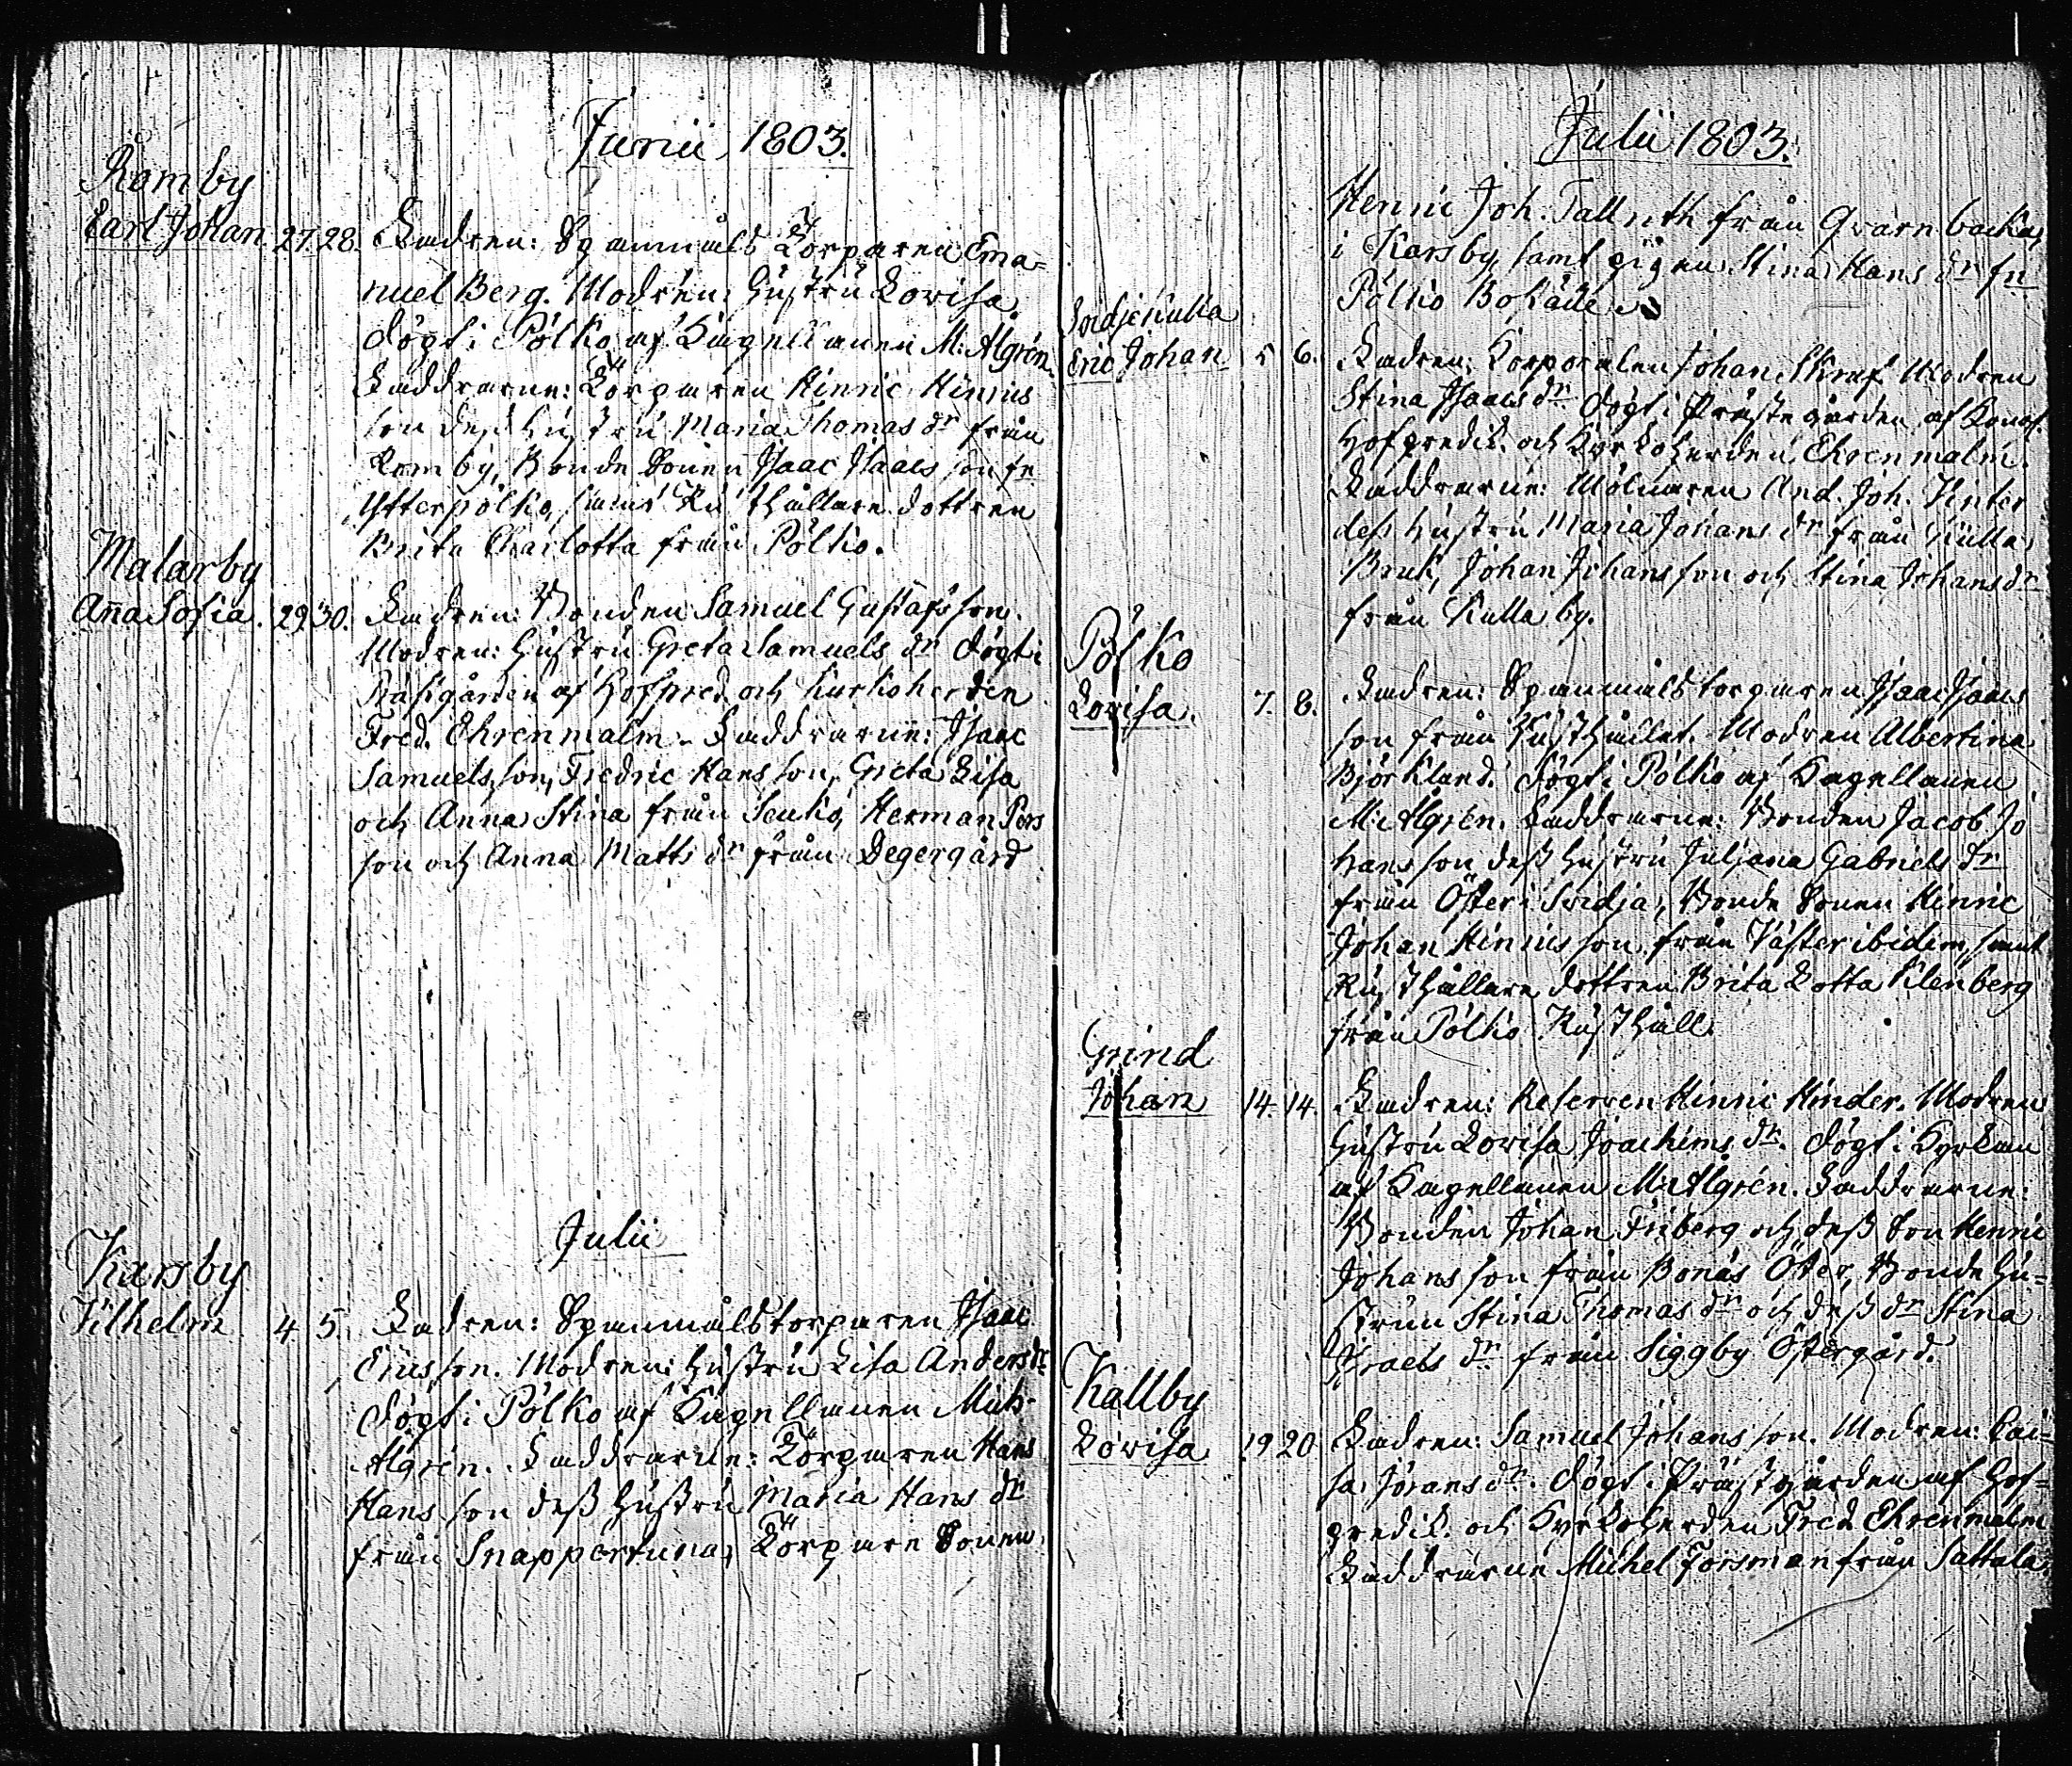 Junii 1803.
Romby
Carl Johan. 27. 28. Fadren: Spanmåls Torparen Ema=
nuel Berg. Modren: Hustru Lovisa.
döpt i Pölkö af Capellanen M: Algrén.
Faddrarne: Torparen Hinric Hinrics
son dess Hustru Maria Thomas dr från
Romby, Bonde Sonen Isaac Isaacs son fr
Ytterpölkö, samt Rusthållare dottren
Brita Charlotta från Pölkö.
Malarby
Aña Sofia. 29. 30. Fadren: Bonden Samuel Gustafs son.
Modren: Hustru Greta Samuels dr döpt i
Prästgården af Hofpred. och Kyrkioherden
Fred. Ehrenmalm. Faddrarne: Isaac
Samuels son, Fredric Hans son, Greta Lisa
och Anna Stina från Senkö, Herman Pers
son och Anna Matts dr från Degergård
Julii
Karsby
Vilhelm 4 5. Fadren: Spanmålstorparen Isaac
Erics son. Modren: Hustru Lisa Anders dr
döpt i Pölkö af Capellanen Mich.
Algrén. Faddrarne: Torparen Hans
Hans son dess Hustru Maria Hans dr
från Snappertuna, Torpare Sonen
Julii 1803.
Henric Joh. Tallroth från Qvarnbacka
i Karsby, samt pigan Stina Hans dr fr
Pölkö Boställe.
Svidja Kulla
Eric Johan 5 6. Fadren: Korporalen Johan Skraf Modren
Stina Isaacs dr döpt i Prästegården af
Hofpredik. och Kyrkoherden Ehrenmalm.
Faddrarne: Mölnaren And. Joh. Vinter
dess Hustru Maria Johans dr från Kulla
Bruk, Johan Johans son och Stina Johans dr
från Kulla by.
Pölkö
Lovisa. 7. 8. Fadren: Spanmåls torparen Isaac Isaacs
son från Rusthållet. Modren Albertina
Björklund. döpt i Pölkö af Capellanen
M: Algrén. Faddrarne: Bonden Jacob Jo
hans son dess Hustru Juliana Gabriels dr
från Öster i Svidja, Bonde Sonen Hinric
Johan Hinrics son från Väster ibidem, samt
Rusthållare dottren Brita Lotta Klenberg
från Pölkö Rusthåll.
Grind
Johan 14. 14. Fadren: Reserven Hinric Hinder. Modren
Hustru Lovisa Joachims dr. döpt i Kyrkan
af Capellanen M: Algrén. Faddrarne:
Bonden Johan Friberg och dess Son Henric
Johans son från Bonäs Öster, Bonde Hu=
strun Stina Thomas dr och dess dr Stina
Israels dr från Siggby Östergård.
Kallby
Lovisa 19 20 Fadren: Samuel Johans son. Modren: Cai=
sa Jörans dr. döpt i Prästgården af Hof=
predik. och Kyrkoherden Fred. Ehrenmalm
Faddrarne Michel Forsman från Sattala